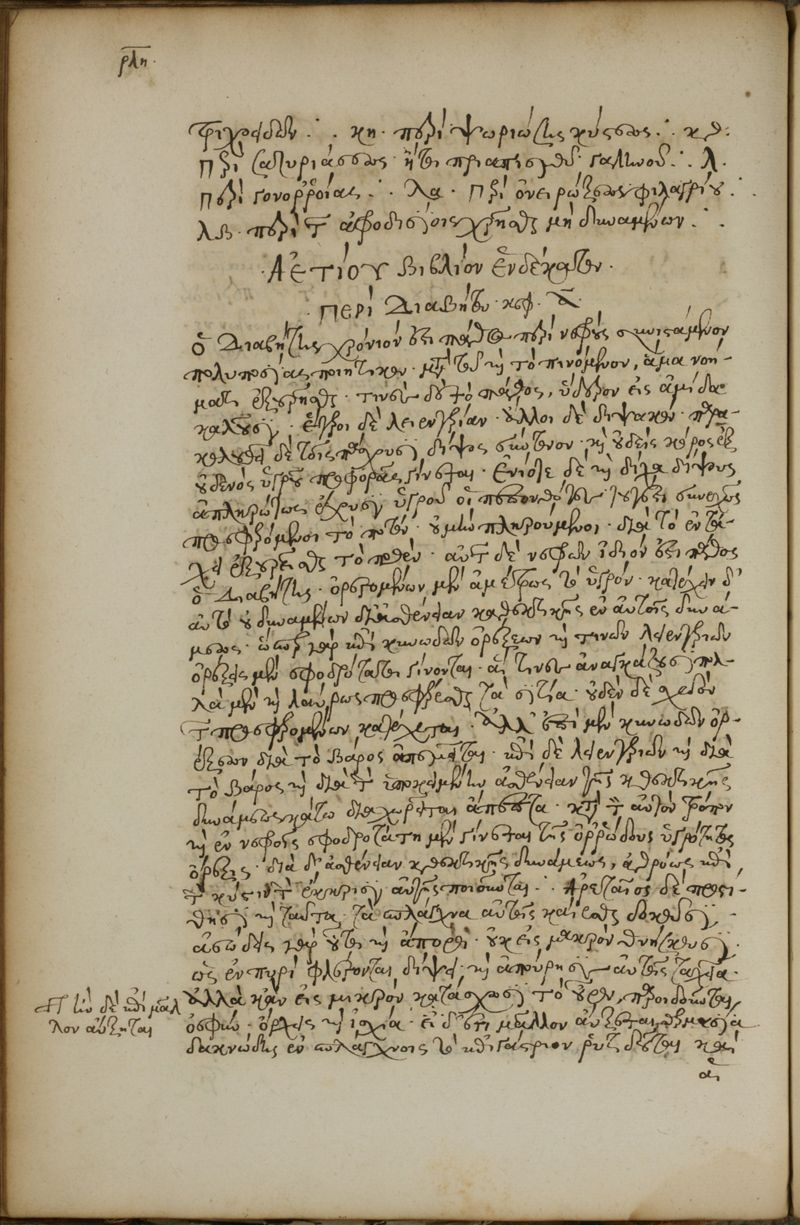 ρλη.
τριχώδεων ∴ κη · περὶ ψωριώσης κύστεως ∴ κθ ·
Περὶ σατυριάσεως ἤτοι πριαπισμοῦ · γαληνοῦ ∴ λ ·
Περὶ γονορροίας ∴ λα · Περὶ ὀνειρώξεως φιλαγρίου ∴
λβ · περὶ τῶν ἀφροδισίοις χρῆσθαι μὴ δυναμένων ∴
· ΑΕΤΙΟΥ Βιβλίον ἑνδέκατον ·
· ΠΕΡΙ Διαβήτου · κεφ · α
ὁ Διαβήτης χρόνιόν ἐστι πάθος περὶ νεφροὺς συνιστάμενον
πολυποσίας ποιητικὸν · μετὰ τοῦ καὶ τὸ πινόμενον, ἅμα νοή-
ματι ἐξουρεῖσθαι · τινὲς δὲ τὸ πάθος, ὕδερον εἰς ἀμίδα
καλοῦσιν · ἕτεροι δὲ λειεντερίαν · ἄλλοι δὲ διψακὸν · παρα-
κολουθεῖ δὲ τοῖς πάσχουσι δίψος σύντονον · καὶ οὐδεὶς κόρος ἐξ
οὐδενὸς ὑγροῦ προσφορᾶς γίνεται · ἐνίοτε δὲ καὶ δίχα δίψους
ἀπληρώτως ἔχουσιν ὑγροῦ οἱ πεπονθότες συνεχῶς
προσφερόμενοι τὸ ποτὸν · οὐ μὴν πληρούμενοι · διὰ τὸ ἐν τά-
χει ἐξουρεῖσθαι τὸ ποθὲν · αὐτῶν δὲ νεφρῶν ἴδιόν ἐστι πάθος
ὁ Διαβήτης · ὀρεγομένων μὲν ἀμέτρως τὸ ὑγρὸν · κατέχειν δ᾽
αὐτὸ οὐ δυναμένων διὰ ἀσθένειαν καθεκτικῆς ἐν αὐτοῖς δυνά-
μεως · ὥσπερ γὰρ ἐπὶ κυνωδῶν ὀρέξεων καὶ τινῶν λειεντεριῶν
ὀρέξεις μὲν σφοδρόταται γίνονται · αἵ τινες ἀναγκάζουσι πολ-
λὰ μὲν καὶ λαύρως προσφέρεσθαι τὰ σιτία · οὐδὲν δὲ σχεδὸν
τῶν προσφερομένων κατέχεται · ἀλλ᾽ ἐπὶ μὲν κυνωδῶν ὀρ-
έξεων διὰ τὸ βάρος ἀπεμεῖται · ἐπὶ δὲ λειεντεριῶν καὶ διὰ
τὸ βάρος καὶ διὰ τὴν ὑποκειμένην ἀσθένειαν τῆς καθεκτικῆς
δυνάμεως κάτω διαχωρεῖται ἄπεπτα · κατὰ τὸν αὐτὸν τρόπον
καὶ ἐν νεφροῖς σφοδροτάτη μὲν γίνεται τῆς ὀρρώδους ὑγρότητος
ὄρεξις · διὰ δ᾽ ἀσθένειαν καθεκτικῆς δυνάμεως, ἀθρόως ἐπὶ
τὴν κύστιν τὴν ἔκκρισιν αὐτῆς ποιοῦνται ∴ Ἀρεταῖος δὲ προστί-
θησι καὶ ταῦτα · τὰ σπλάγχνα αὐτοῖς καίεσθαι δοκοῦσιν ·
ἀσώδεις γὰρ οὗτοι καὶ ἄποροι · οὐκ εἰς μακρὸν θνήσκουσιν ·
ὡς ἐν πυρὶ φλέγονται δίψει · καὶ ἀπούρησις αὐτοῖς ταχεῖα ·
ἀλλὰ κἂν εἰς μικρὸν κατάσχωσι τὸ οὖρον, παροιδοῦνται
ὀσφὺν · ὄρχεις καὶ ἰσχία · εἰ δ᾽ ἔτι μᾶλλον αὔξεται, θερμασία
δακνώδης ἐν σπλάγχνοις τὸ ἐπιγάστριον ῥυτιδοῦται καὶ
αἱ
ἢν δὲ ἐπὶ μᾶλ
λον αὔξηται